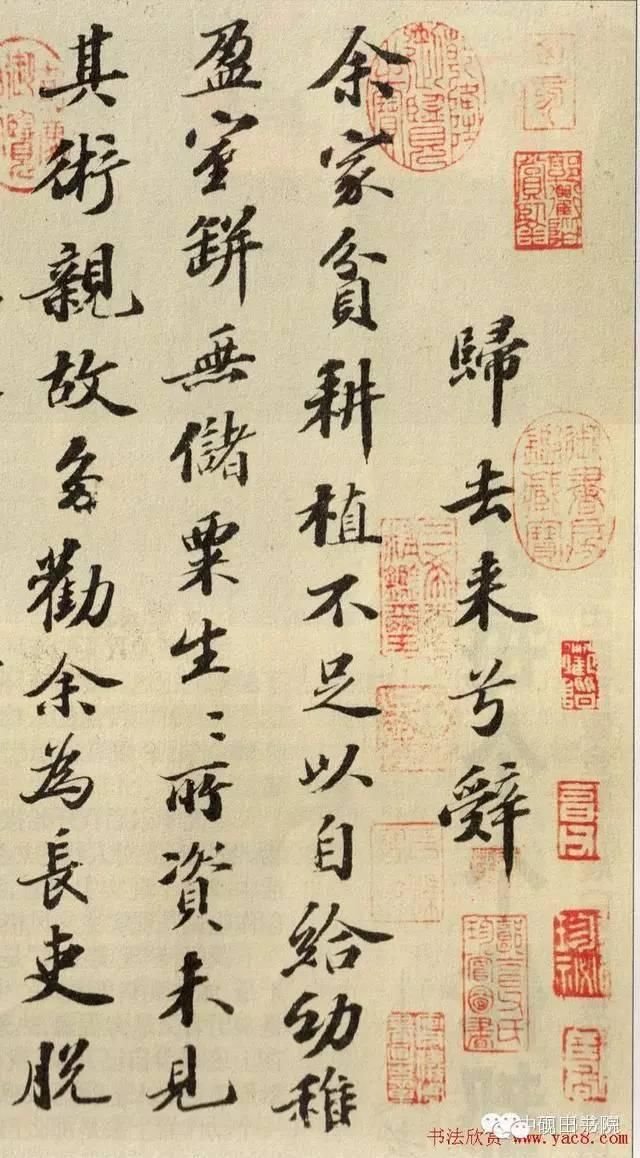 歸去来兮辭
余家貧耕植不足以自給幼稚
盈室缾無儲粟生〻所資未見
其術親故多勸余為長吏脱
中砚田书院
书法欣赏 www.yac8.com